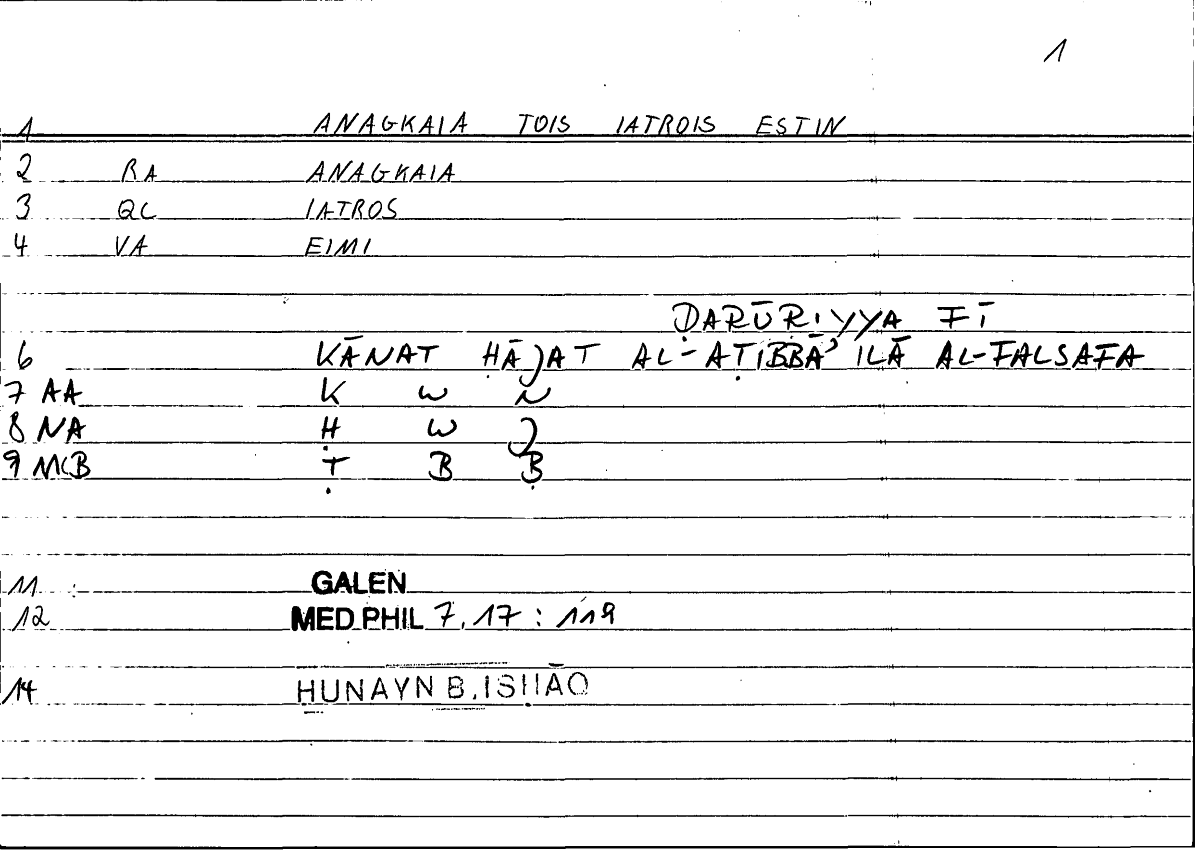 1
1 ANAGKAIA TOIS IATROIS ESTIN
2 RA ANAGKAIA
3 QC IATROS
4 VA EIMI
ḌARŪRIYYA FĪ
6 KĀNAT ḤĀJAT AL-AṬIBBĀʾ ILĀ AL-FALSAFA
7 AA K W N
8 NA Ḥ W J
9 MCB Ṭ B B
11 GALEN
12 MED.PHIL 7,17 : 119
14 ḤUNAYN B. ISḤĀQ